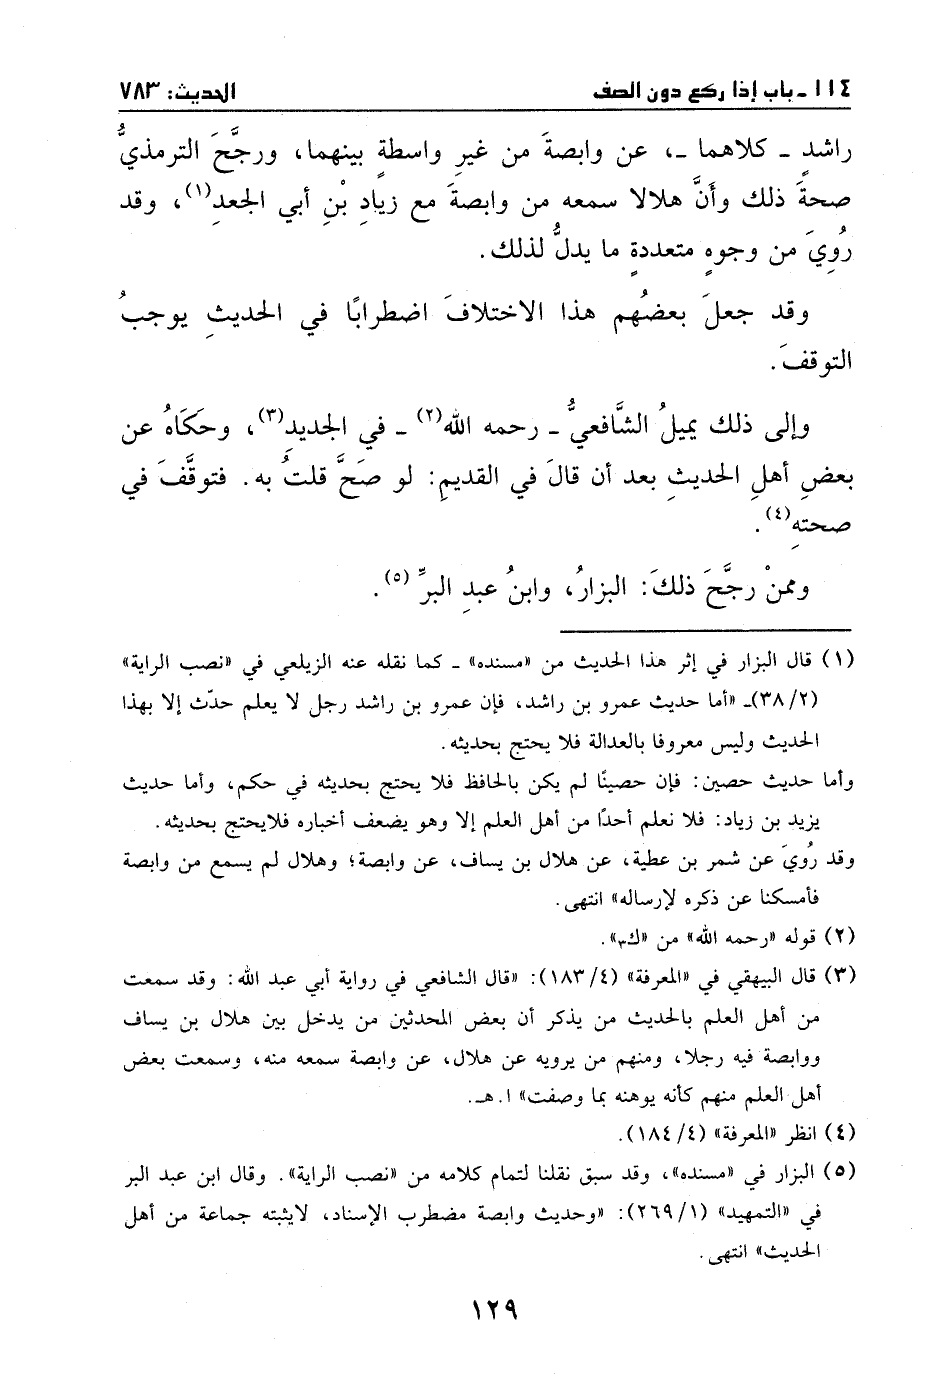 ١١٤ - باب إذا ركع دون الصف
الحديث: ٧٨٣
راشدٍ - كلاهما -، عن وابصةَ من غيرِ واسطةٍ بينهما، ورجَّحَ الترمذيُّ
صحةَ ذلك وأَنَّ هلالا سمعه من وابصةَ مع زيادِ بْنِ أبي الجعدِ(١)، وقد
رُوِيَ من وجوهٍ متعددةٍ ما يدلُّ لذلك.
وقد جعلَ بعضُهم هذا الاختلافَ اضطرابًا في الحديثِ يوجبُ
التوقفَ.
وإلى ذلك يميلُ الشَّافعيُّ - رحمه الله(٢) - في الجديدِ(٣)، وحكَاهُ عن
بعضِ أهلِ الحديثِ بعد أن قالَ في القديمِ: لو صَحَّ قلتُ به. فتوقَّفَ في
صحتهِ(٤).
وممنْ رجَّحَ ذلكَ: البزارُ، وابنُ عبدِ البرِّ(٥).
(١) قال البزار في إثر هذا الحديث من «مسنده» - كما نقله عنه الزيلعي في «نصب الراية»
(٣٨/٢)- «أما حديث عمرو بن راشد، فإن عمرو بن راشد رجل لا يعلم حدّث إلا بهذا
الحديث وليس معروفا بالعدالة فلا يحتج بحديثه.
وأما حديث حصين: فإن حصينًا لم يكن بالحافظ فلا يحتج بحديثه في حكم، وأما حديث
يزيد بن زياد: فلا نعلم أحدًا من أهل العلم إلا وهو يضعف أخباره فلايحتج بحديثه.
وقد رُويَ عن شمر بن عطية، عن هلال بن يساف، عن وابصة؛ وهلال لم يسمع من وابصة
فأمسكنا عن ذكره لإرساله» انتهى.
(٢) قوله «رحمه الله» من «ك٣».
(٣) قال البيهقي في «المعرفة» (٤/ ١٨٣): «قال الشافعي في رواية أبي عبد الله: وقد سمعت
من أهل العلم بالحديث من يذكر أن بعض المحدثين من يدخل بين هلال بن يساف
ووابصة فيه رجلا، ومنهم من يرويه عن هلال، عن وابصة سمعه منه، وسمعت بعض
أهل العلم منهم كأنه يوهنه بما وصفت» ا.هـ.
(٤) انظر «المعرفة» (٤/ ١٨٤).
(٥) البزار في «مسنده»، وقد سبق نقلنا لتمام كلامه من «نصب الراية». وقال ابن عبد البر
في «التمهيد» (٢٦٩/١): «وحديث وابصة مضطرب الإسناد، لايثبته جماعة من أهل
الحديث» انتهى.
١٢٩